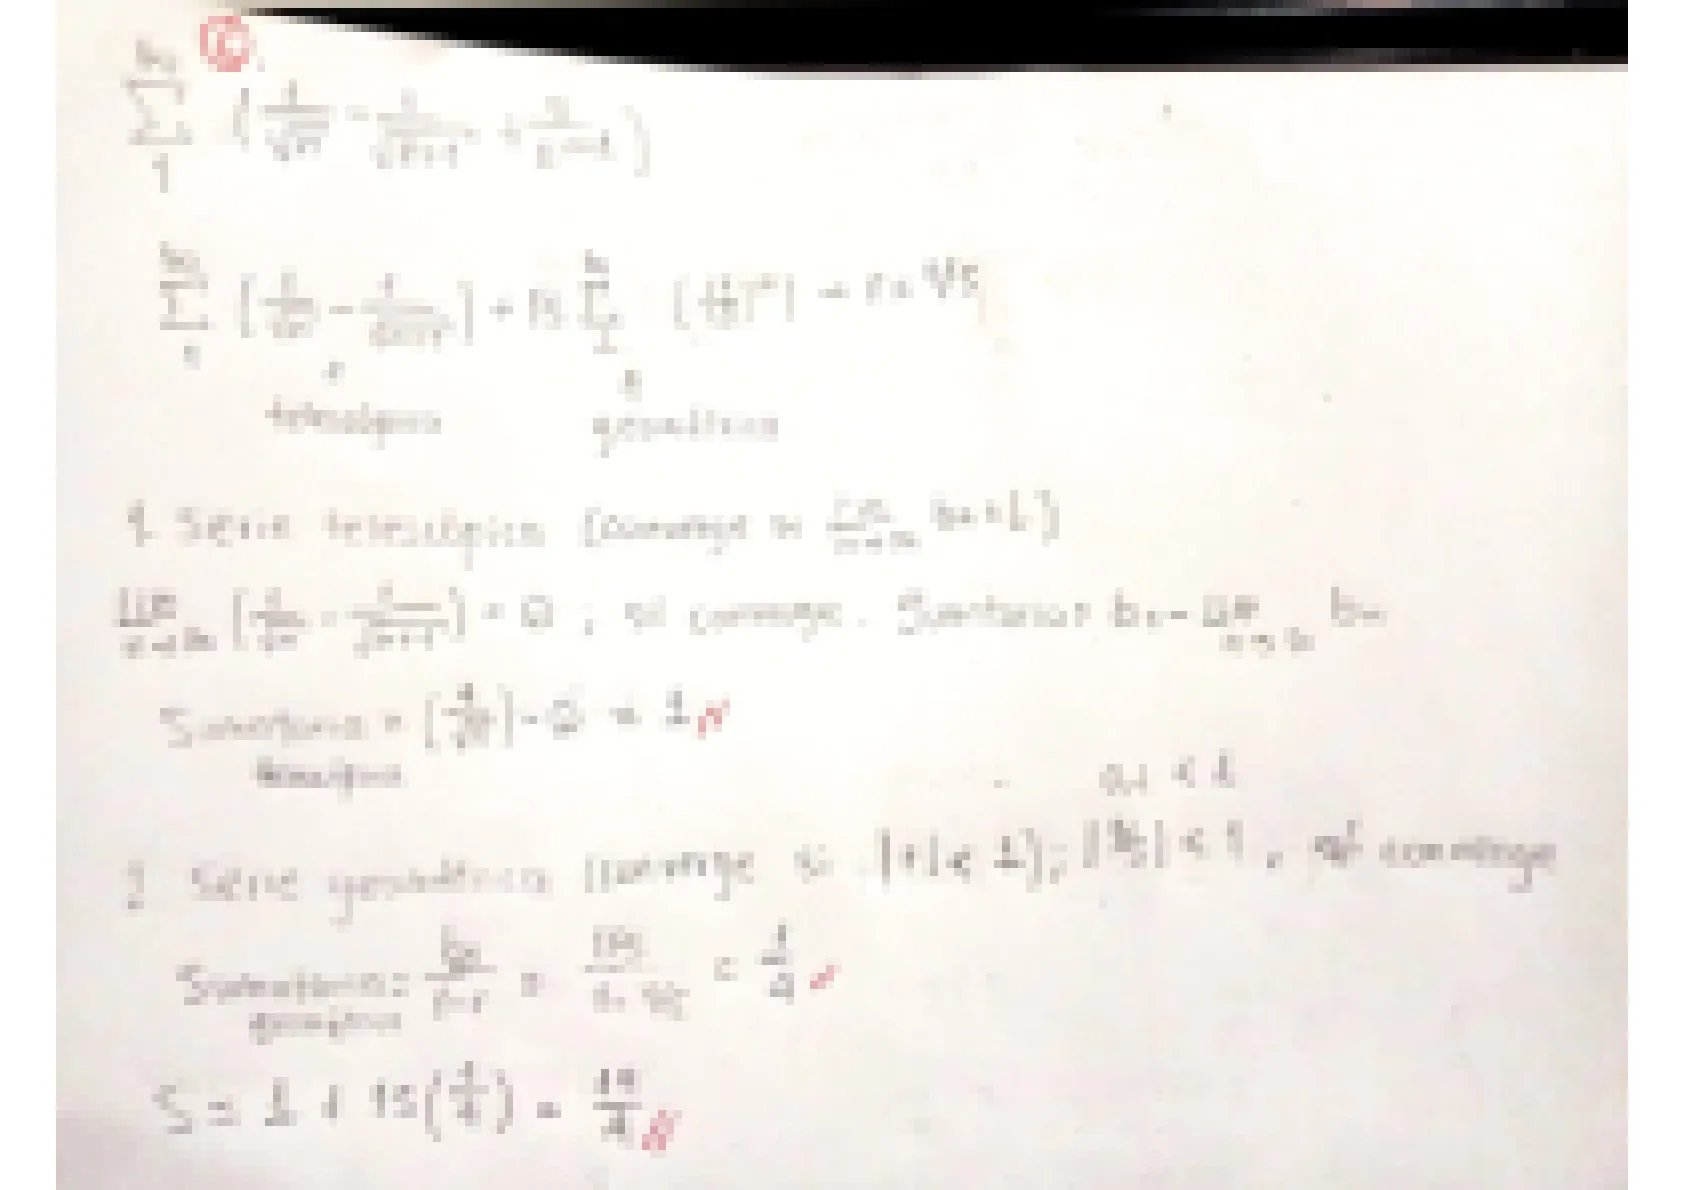 ∞
Σ (1/√n - 1/√(n+1) + 3/5^(n-1))
1
∞ ∞
Σ [1/√n - 1/√(n+1)] + 15 Σ (1/5)^n → r = 1/5
1 1
telescópica geométrica
1 Serie telescópica (converge si lim n→∞ bn = L)
lim n→∞ [1/√n - 1/√(n+1)] = 0 ; sí converge. Sumatoria: b1 - lim n→∞ bn
Sumatoria = [1/√1] - 0 = 1
telescópica
0,2 < 1
2 Serie geométrica (converge si |r| < 1); |1/5| < 1, sí converge
Sumatoria: /(1-r) = (1/5)/(1 - 1/5) = 1/4
geométrica
S = 1 + 15(1/4) = 19/4